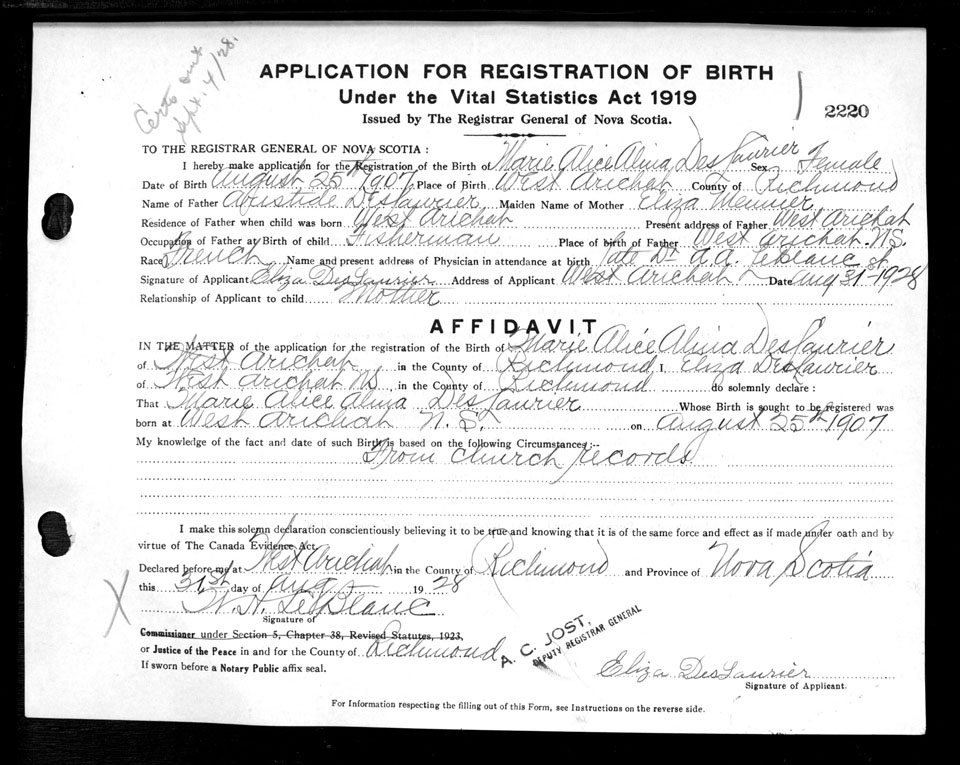 Certs out
Sept. 4/28.
APPLICATION FOR REGISTRATION OF BIRTH
Under the Vital Statistics Act 1919
2220
Issued by The Registrar General of Nova Scotia.
TO THE REGISTRAR GENERAL OF NOVA SCOTIA:
I hereby make application for the Registration of the Birth of Marie Alice Alma DesLaurier Sex Female
Date of Birth August 25th 1907 Place of Birth West Arichat County of Richmond
Name of Father Aristide DesLaurier Maiden Name of Mother Eliza
Residence of Father when child was born West Arichat Present address of Father West Arichat
Occupation of Father at Birth of child Fisherman Place of birth of Father West Arichat N.S.
Race French Name and present address of Physician in attendance at birth late Dr A.A. LeBlanc of
Signature of Applicant Eliza DesLaurier Address of Applicant West Arichat Date Aug 31-1928
Relationship of Applicant to child Mother
AFFIDAVIT
IN THE MATTER of the application for the registration of the Birth of Marie Alice Alma DesLaurier
of West Arichat, in the County of Richmond I, Eliza DesLaurier
of West Arichat NS, in the County of Richmond do solemnly declare:
That Marie Alice Alma DesLaurier Whose Birth is sought to be registered was
born at West Arichat N.S. on August 25th 1907
My knowledge of the fact and date of such Birth is based on the following Circumstances:--
From Church records
I make this solemn declaration conscientiously believing it to be true and knowing that it is of the same force and effect as if made under oath and by
virtue of The Canada Evidence Act.
Declared before me at West Arichat in the County of Richmond and Province of Nova Scotia
this 31st day of Aug 1928
LeBlanc
Signature of
Commissioner under Section 5, Chapter 38, Revised Statutes, 1923,
or Justice of the Peace in and for the County of Richmond
A. C. JOST,
DEPUTY REGISTRAR GENERAL
If sworn before a Notary Public affix seal.
Eliza DesLaurier
Signature of Applicant.
For Information respecting the filling out of this Form, see Instructions on the reverse side.